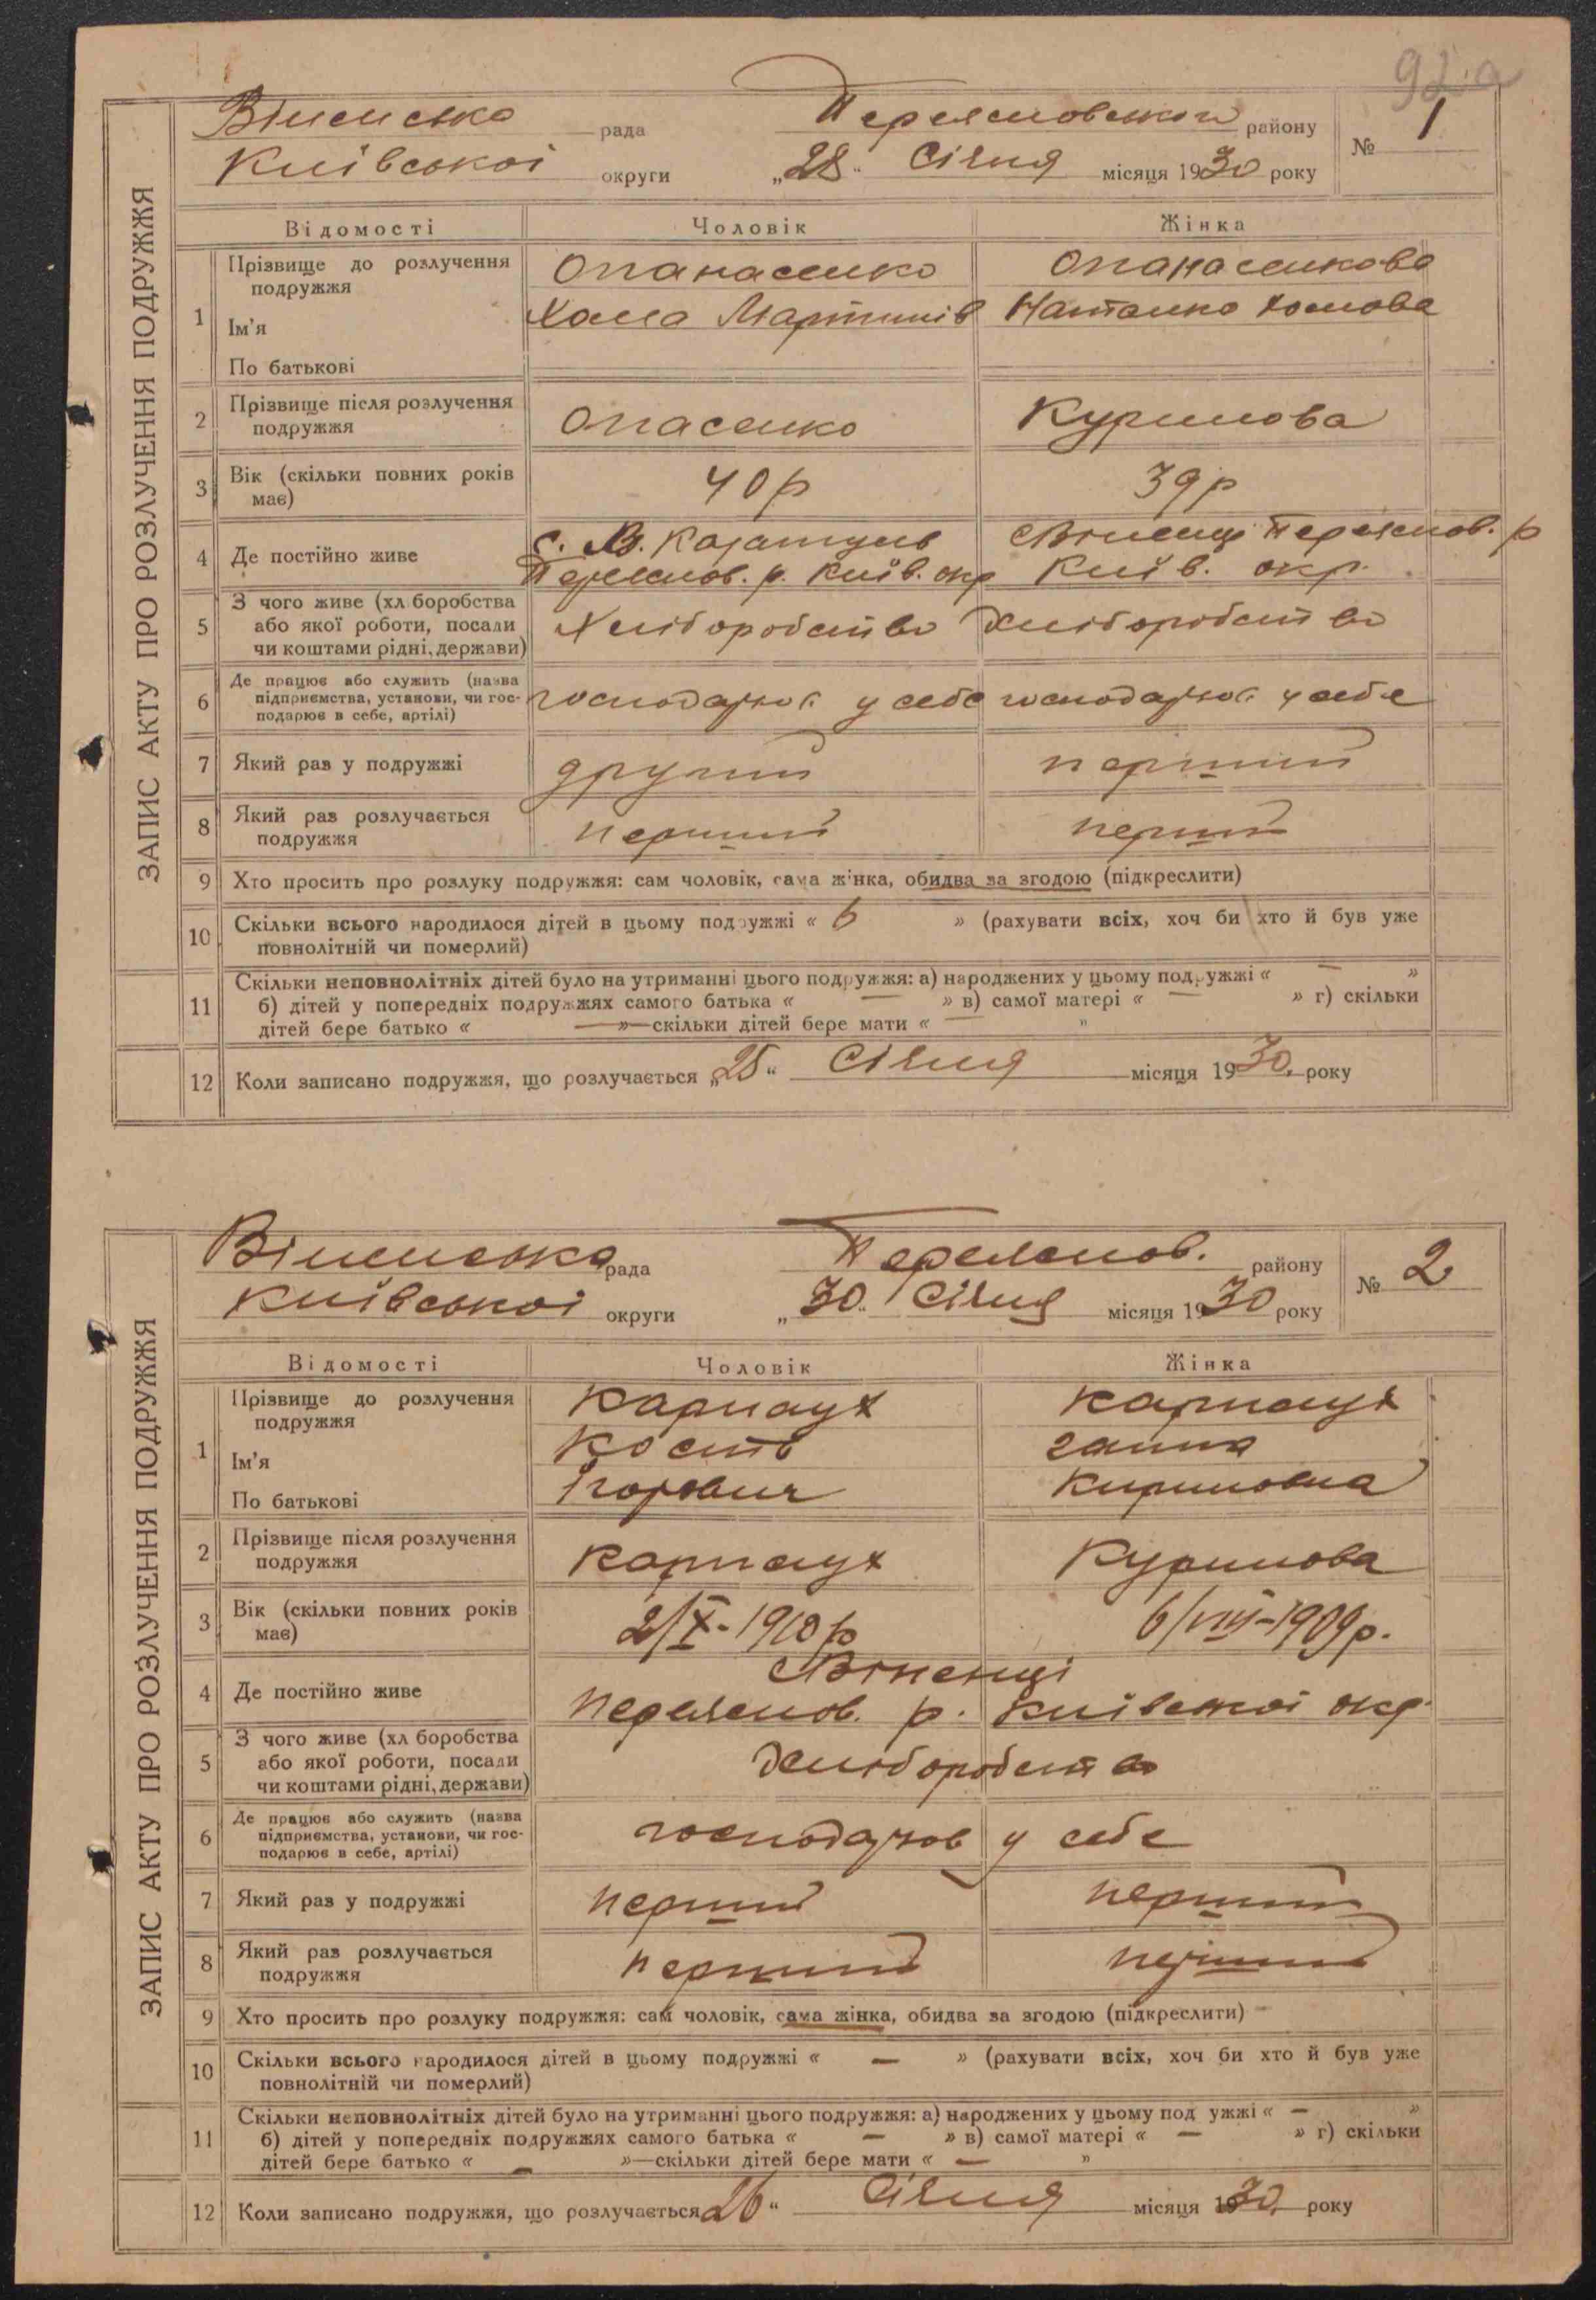 92а
ЗАПИС АКТУ ПРО РОЗЛУЧЕННЯ ПОДРУЖЖЯ
Віненська рада Переяславського району № 1
Київської округи „28“ Січня місяця 1930 року
Відомості Чоловік Жінка
1 Прізвище до розлучення подружжя Опанасенко Опанасенкова
Ім'я Хома Мартинів Наталка Хомова
По батькові
2 Прізвище після розлучення подружжя Опасенко Куринова
3 Вік (скільки повних років має) 40 р 39 р
4 Де постійно живе с. В. Каратуль Вненці Переяслов. р
Переяслов. р. Київ. окр Київ. окр.
5 З чого живе (хл боробства або якої роботи, посади чи коштами рідні, держави) Хліборобство Хліборобство
6 Де працює або служить (назва підприємства, установи, чи гос-подарює в себе, артілі) господарює у себе господарює у себе
7 Який раз у подружжі другий перший
8 Який раз розлучається подружжя перший перший
9 Хто просить про розлуку подружжя: сам чоловік, сама жінка, обидва за згодою (підкреслити)
10 Скільки всього народилося дітей в цьому подружжі « 6 » (рахувати всіх, хоч би хто й був уже
повнолітній чи померлий)
11 Скільки неповнолітніх дітей було на утриманні цього подружжя: а) народжених у цьому подружжі « — »
б) дітей у попередніх подружжях самого батька « — » в) самої матері « — » г) скільки
дітей бере батько « — »—скільки дітей бере мати « — »
12 Коли записано подружжя, що розлучається „25“ Січня місяця 1930 року
ЗАПИС АКТУ ПРО РОЗЛУЧЕННЯ ПОДРУЖЖЯ
Віненська рада Переяслов. району № 2
Київської округи „30“ Січня місяця 1930 року
Відомості Чоловік Жінка
1 Прізвище до розлучення подружжя Карнаух Карнаух
Ім'я Кость Ганна
По батькові Ігорович Кириловна
2 Прізвище після розлучення подружжя Карнаух Куринова
3 Вік (скільки повних років має) 2/X-1910 р 6/VIII-1909 р.
4 Де постійно живе Вненці
Переяслов. р. Київської окр.
5 З чого живе (хл боробства або якої роботи, посади чи коштами рідні, держави) Хліборобства
6 Де працює або служить (назва підприємства, установи, чи гос-подарює в себе, артілі) господарює у себе
7 Який раз у подружжі перший перший
8 Який раз розлучається подружжя перший перший
9 Хто просить про розлуку подружжя: сам чоловік, сама жінка, обидва за згодою (підкреслити)
10 Скільки всього народилося дітей в цьому подружжі « — » (рахувати всіх, хоч би хто й був уже
повнолітній чи померлий)
11 Скільки неповнолітніх дітей було на утриманні цього подружжя: а) народжених у цьому под ужжі « — »
б) дітей у попередніх подружжях самого батька « — » в) самої матері « — » г) скільки
дітей бере батько « — »—скільки дітей бере мати « — »
12 Коли записано подружжя, що розлучається 26“ Січня місяця 1930 року